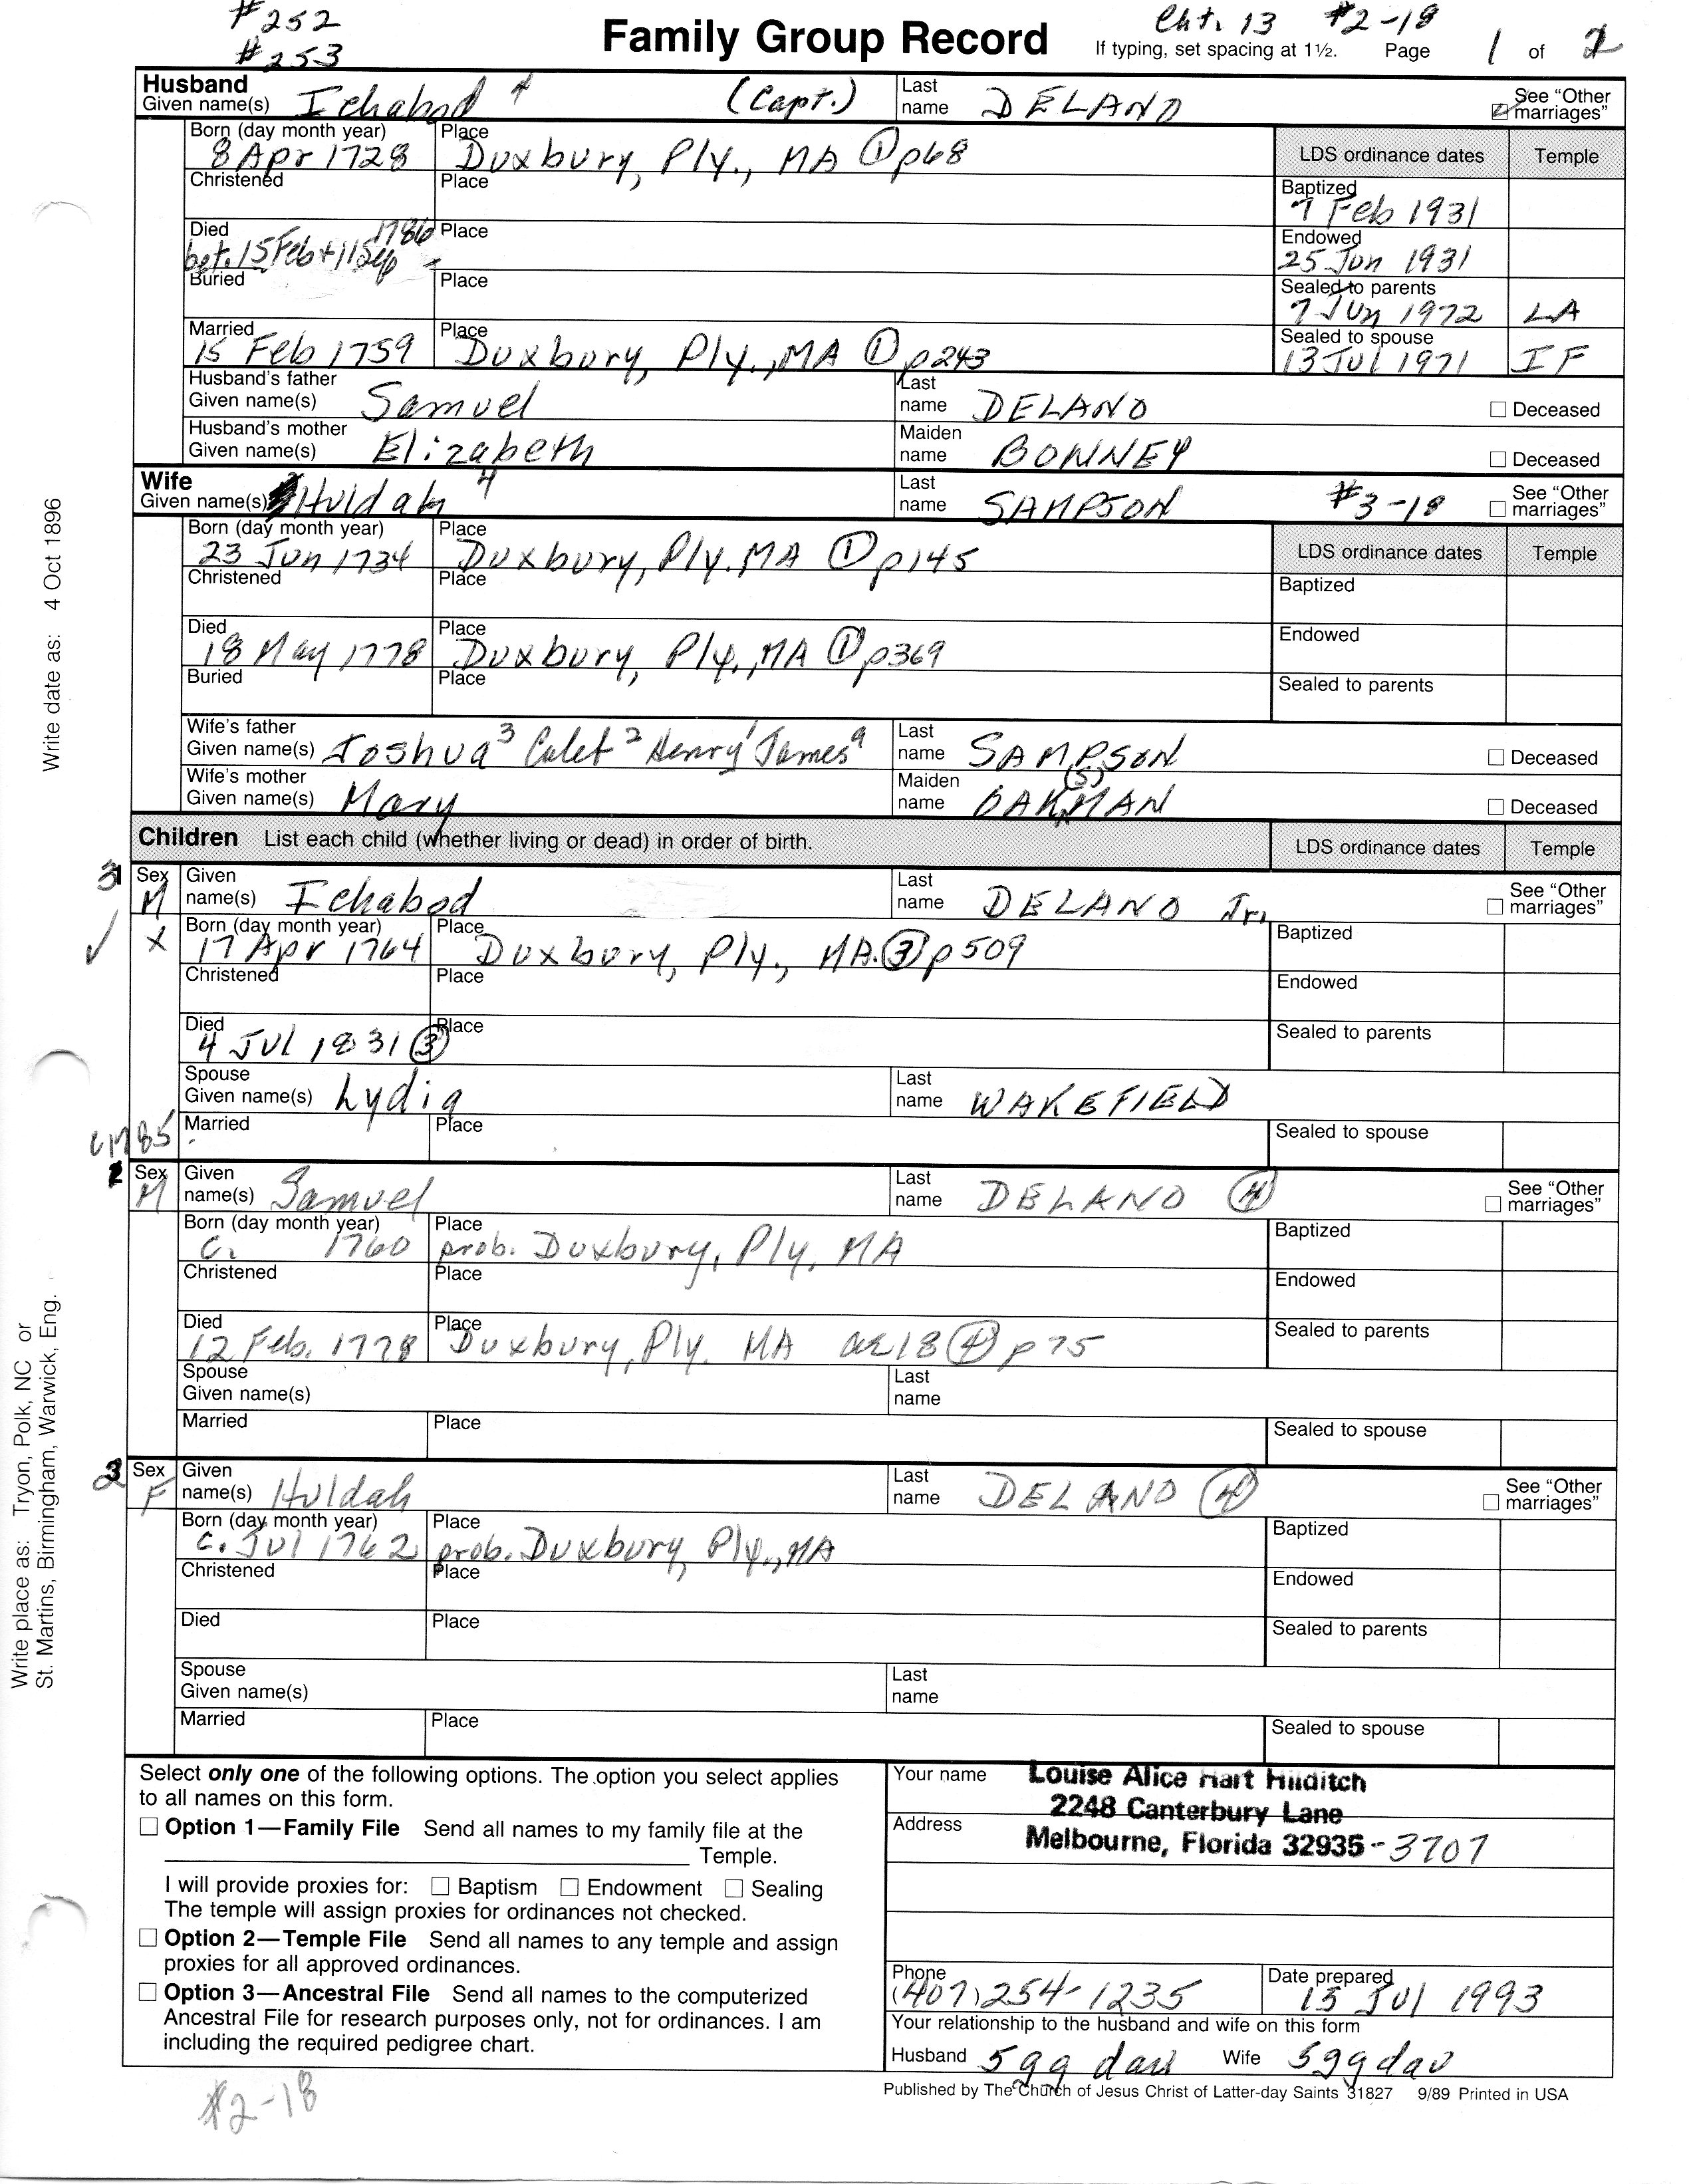 #252
#253
Family Group Record
Cht. 13 #2-18
If typing, set spacing at 1½. Page 1 of 2
Husband
Given name(s) Ichabod 4 (Capt.) Last name DELANO See "Other marriages"
Born (day month year) 8 Apr 1728 Place Duxbury, Ply., MA ① p68 LDS ordinance dates Temple
Christened Place Baptized 7 Feb 1931
Died bet. 15 Feb + 11 Sep 1786 Place Endowed 25 Jun 1931
Buried Place Sealed to parents 7 Jun 1972 LA
Married 15 Feb 1759 Place Duxbury, Ply., MA ① p243 Sealed to spouse 13 Jul 1971 IF
Husband's father Given name(s) Samuel Last name DELANO Deceased
Husband's mother Given name(s) Elizabeth Maiden name BONNEY Deceased
Wife
Given name(s) Huldah 4 Last name SAMPSON #3-18 See "Other marriages"
Born (day month year) 23 Jun 1734 Place Duxbury, Ply. MA ① p145 LDS ordinance dates Temple
Christened Place Baptized
Died 18 May 1778 Place Duxbury, Ply., MA ① p369 Endowed
Buried Place Sealed to parents
Wife's father Given name(s) Joshua 3 Calet 2 Henry 1 James a Last name SAMPSON Deceased
Wife's mother Given name(s) Mary Maiden name OAK(S)MAN Deceased
Children List each child (whether living or dead) in order of birth. LDS ordinance dates Temple
3 Sex M Given name(s) Ichabod Last name DELANO Jr. See "Other marriages"
✓ X Born (day month year) 17 Apr 1764 Place Duxbury, Ply., MA. ③ p509 Baptized
Christened Place Endowed
Died 4 JUL 1831 ③ Place Sealed to parents
Spouse Given name(s) Lydia Last name WAKEFIELD
c1785 Married Place Sealed to spouse
Sex M Given name(s) Samuel Last name DELANO ④ See "Other marriages"
Born (day month year) c. 1760 Place prob. Duxbury, Ply, MA Baptized
Christened Place Endowed
Died 12 Feb. 1778 Place Duxbury, Ply. MA ae 18 ④ p75 Sealed to parents
Spouse Given name(s) Last name
Married Place Sealed to spouse
Sex F Given name(s) Huldah Last name DELANO ④ See "Other marriages"
Born (day month year) c. Jul 1762 Place prob. Duxbury, Ply., MA Baptized
Christened Place Endowed
Died Place Sealed to parents
Spouse Given name(s) Last name
Married Place Sealed to spouse
Select only one of the following options. The option you select applies
to all names on this form.
Option 1—Family File Send all names to my family file at the
Temple.
I will provide proxies for: Baptism Endowment Sealing
The temple will assign proxies for ordinances not checked.
Option 2—Temple File Send all names to any temple and assign
proxies for all approved ordinances.
Option 3—Ancestral File Send all names to the computerized
Ancestral File for research purposes only, not for ordinances. I am
including the required pedigree chart.
Your name Louise Alice Hart Hilditch
2248 Canterbury Lane
Address Melbourne, Florida 32935-3707
Phone (407) 254-1235 Date prepared 15 Jul 1993
Your relationship to the husband and wife on this form
Husband 5 gg dau Wife 5 gg dau
Published by The Church of Jesus Christ of Latter-day Saints 31827 9/89 Printed in USA
#2-18
Write date as: 4 Oct 1896
Write place as: Tryon, Polk, NC or
St. Martins, Birmingham, Warwick, Eng.